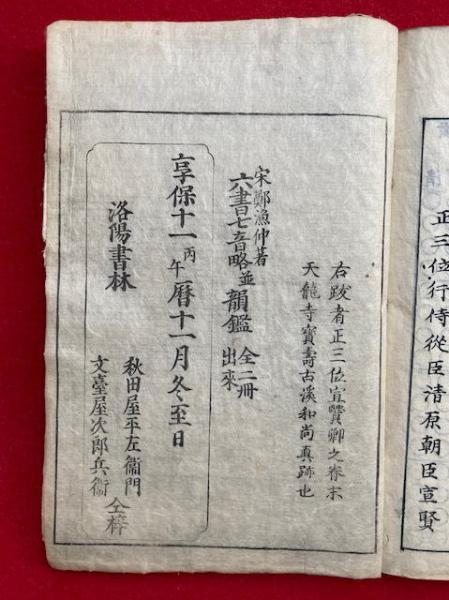 正三位行侍從臣清原朝臣宣賢
右跋者正三位宣賢卿之眷末
天龍寺寶壽古溪和尚真跡也
宋鄭漁仲著
六書七音略並韻鑑 全二冊 出來
享保十一丙午曆十一月冬至日
洛陽書林
秋田屋平左衞門
文臺屋次郎兵衛
仝梓